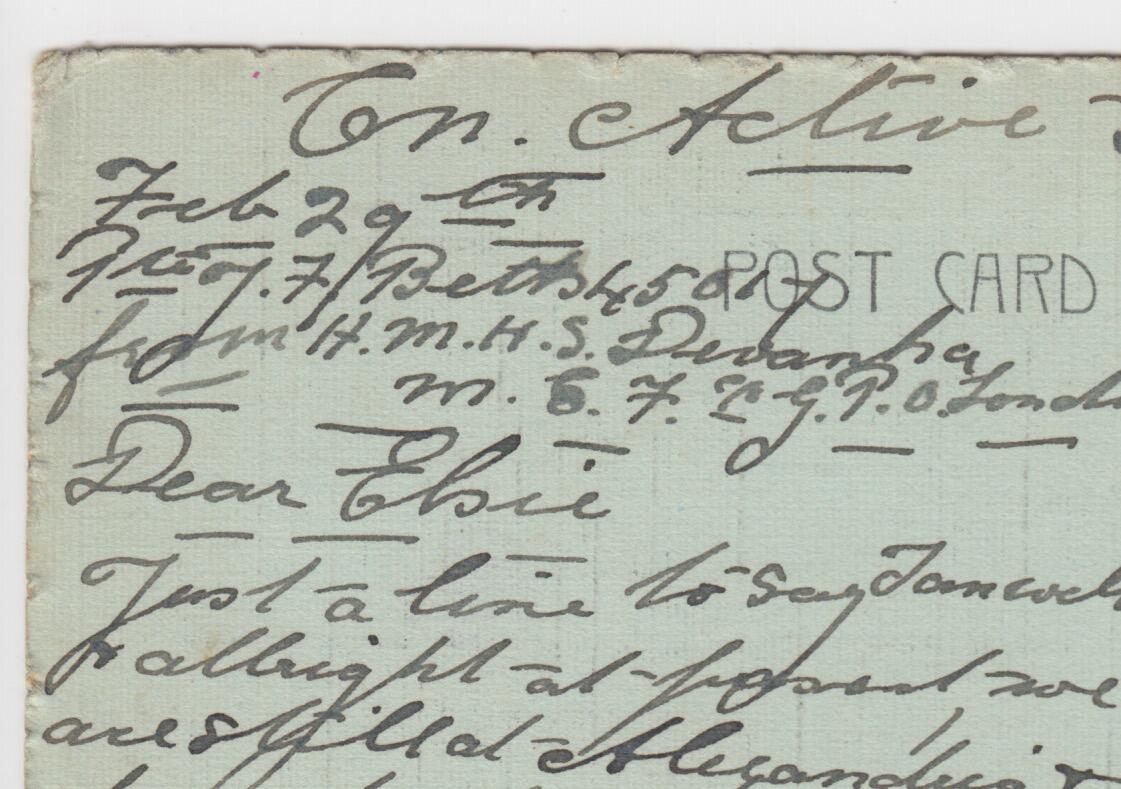 On. Active
Feb 29th
Pte J. F. Betts 4501
POST CARD
from H.M.H.S. Devanha
M. E. F. G.P.O. London
Dear Elsie
Just a line to say I am well
& allright at present we
are still at Alexandria &